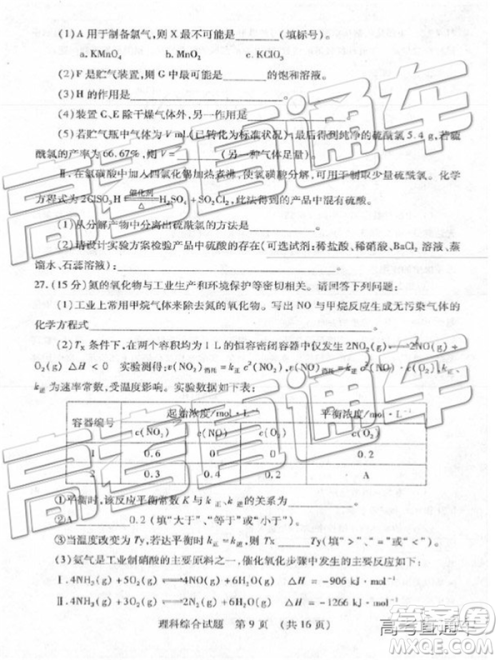 (1)A用于制备氯气,则X最不可能是______(填标号)。
a. KMnO₄ b. MnO₂ c. KClO₃
(2)F是贮气装置,则G中最可能是______的饱和溶液。
(3)H的作用是
(4)装置C、E除干燥气体外,另一作用是
(5)若贮气瓶中气体V mL(已转化为标准状况)最后得到纯净的硫酰氯5.4 g,若硫
酰氯的产率为66.67%,则V=______(另一种气体足量)。
Ⅱ.在氯磺酸中加入四氯化锡
方程式为2ClSO₃H H₂SO₄+SO₂Cl₂,此法得到的产品中混有硫酸。
(1)从分解产物中分离出硫酰氯的方法是
(2)请设计实验方案检验产品中硫酸的存在(可选试剂:稀盐酸、稀硝酸、BaCl₂溶液、蒸
馏水、石蕊溶液)
27.(15分)氮的氧化物与工业生产和环境保护等密切相关。请回答下列问题:
(1)工业上常用甲烷气体来除去氮的氧化物。写出NO与甲烷反应生成无污染气体的
化学方程式
(2)Tx条件下,在两个容积均为1 L的恒容密闭容器中仅发生2NO₂(g)⇌2NO(g)+
O₂(g) ΔH<0 实验测得:
为速率常数,受温度影响。实验数据如下表:
容器编号 起始浓度/mol·L⁻¹ 平衡浓度/mol·L⁻¹
c(NO₂) c(NO) c(O₂) c(O₂)
1 0.6 0 0 0.2
2 0.3 0.4 0.2 A
①平衡时,该反应平衡常数K与k正、k逆
②A______0.2(填"大于"、"等于"或"小于")。
③当温度改变为Ty,若达平衡时k正=k逆
(3)氨气是工业制硝酸的主要原料之一,催化氧化步骤中发生的主要反应如下:
Ⅰ.4NH₃(g)+5O₂(g)⇌4NO(g)+6H₂O(g) ΔH=-906 kJ·mol⁻¹
Ⅱ.4NH₃(g)+3O₂(g)⇌2N₂(g)+6H₂O(g) ΔH=-1266 kJ·mol⁻¹
理科综合试题 第9页 (共16页)
高考直通车